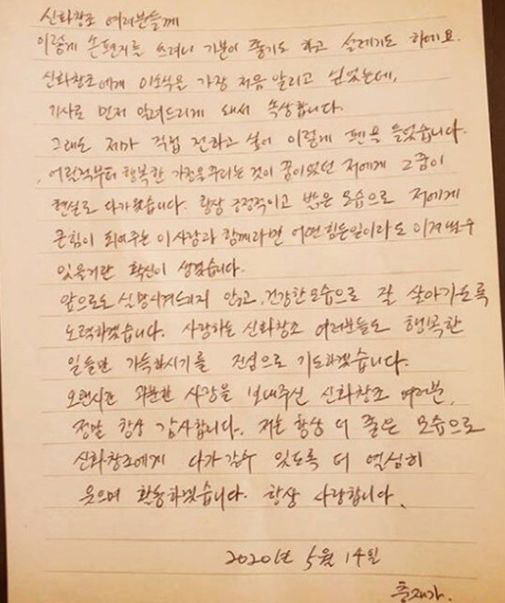 신화창조 여러분들께
이렇게 손편지를 쓰려니 기분이 좋기도 하고 설레기도 하네요.
신화창조에게 이소식을 가장 처음 알리고 싶었는데,
기사로 먼저 알려드리게 돼서 속상합니다.
그래도 제가 직접 전하고 싶어 이렇게 펜을 들었습니다.
어릴적부터 행복한 가정을 꾸리는 것이 꿈이었던 저에게 그 꿈이
현실로 다가왔습니다. 항상 긍정적이고 밝은 모습으로 저에게
큰힘이 되어주는 이 사람과 함께라면 어떤 힘든일이라도 이겨낼수
있을거란 확신이 생겼습니다.
앞으로도 실망시켜드리지 않고, 건강한 모습으로 잘 살아가도록
노력하겠습니다. 사랑하는 신화창조 여러분들도 행복한
일들만 가득하시기를 진심으로 기도하겠습니다.
오랜시간 과분한 사랑을 보내주신 신화창조 여러분,
정말 항상 감사합니다. 저는 항상 더 좋은 모습으로
신화창조에게 다가갈수 있도록 더 열심히
웃으며 활동하겠습니다. 항상 사랑합니다.
2020년 5월 14일
충재가.